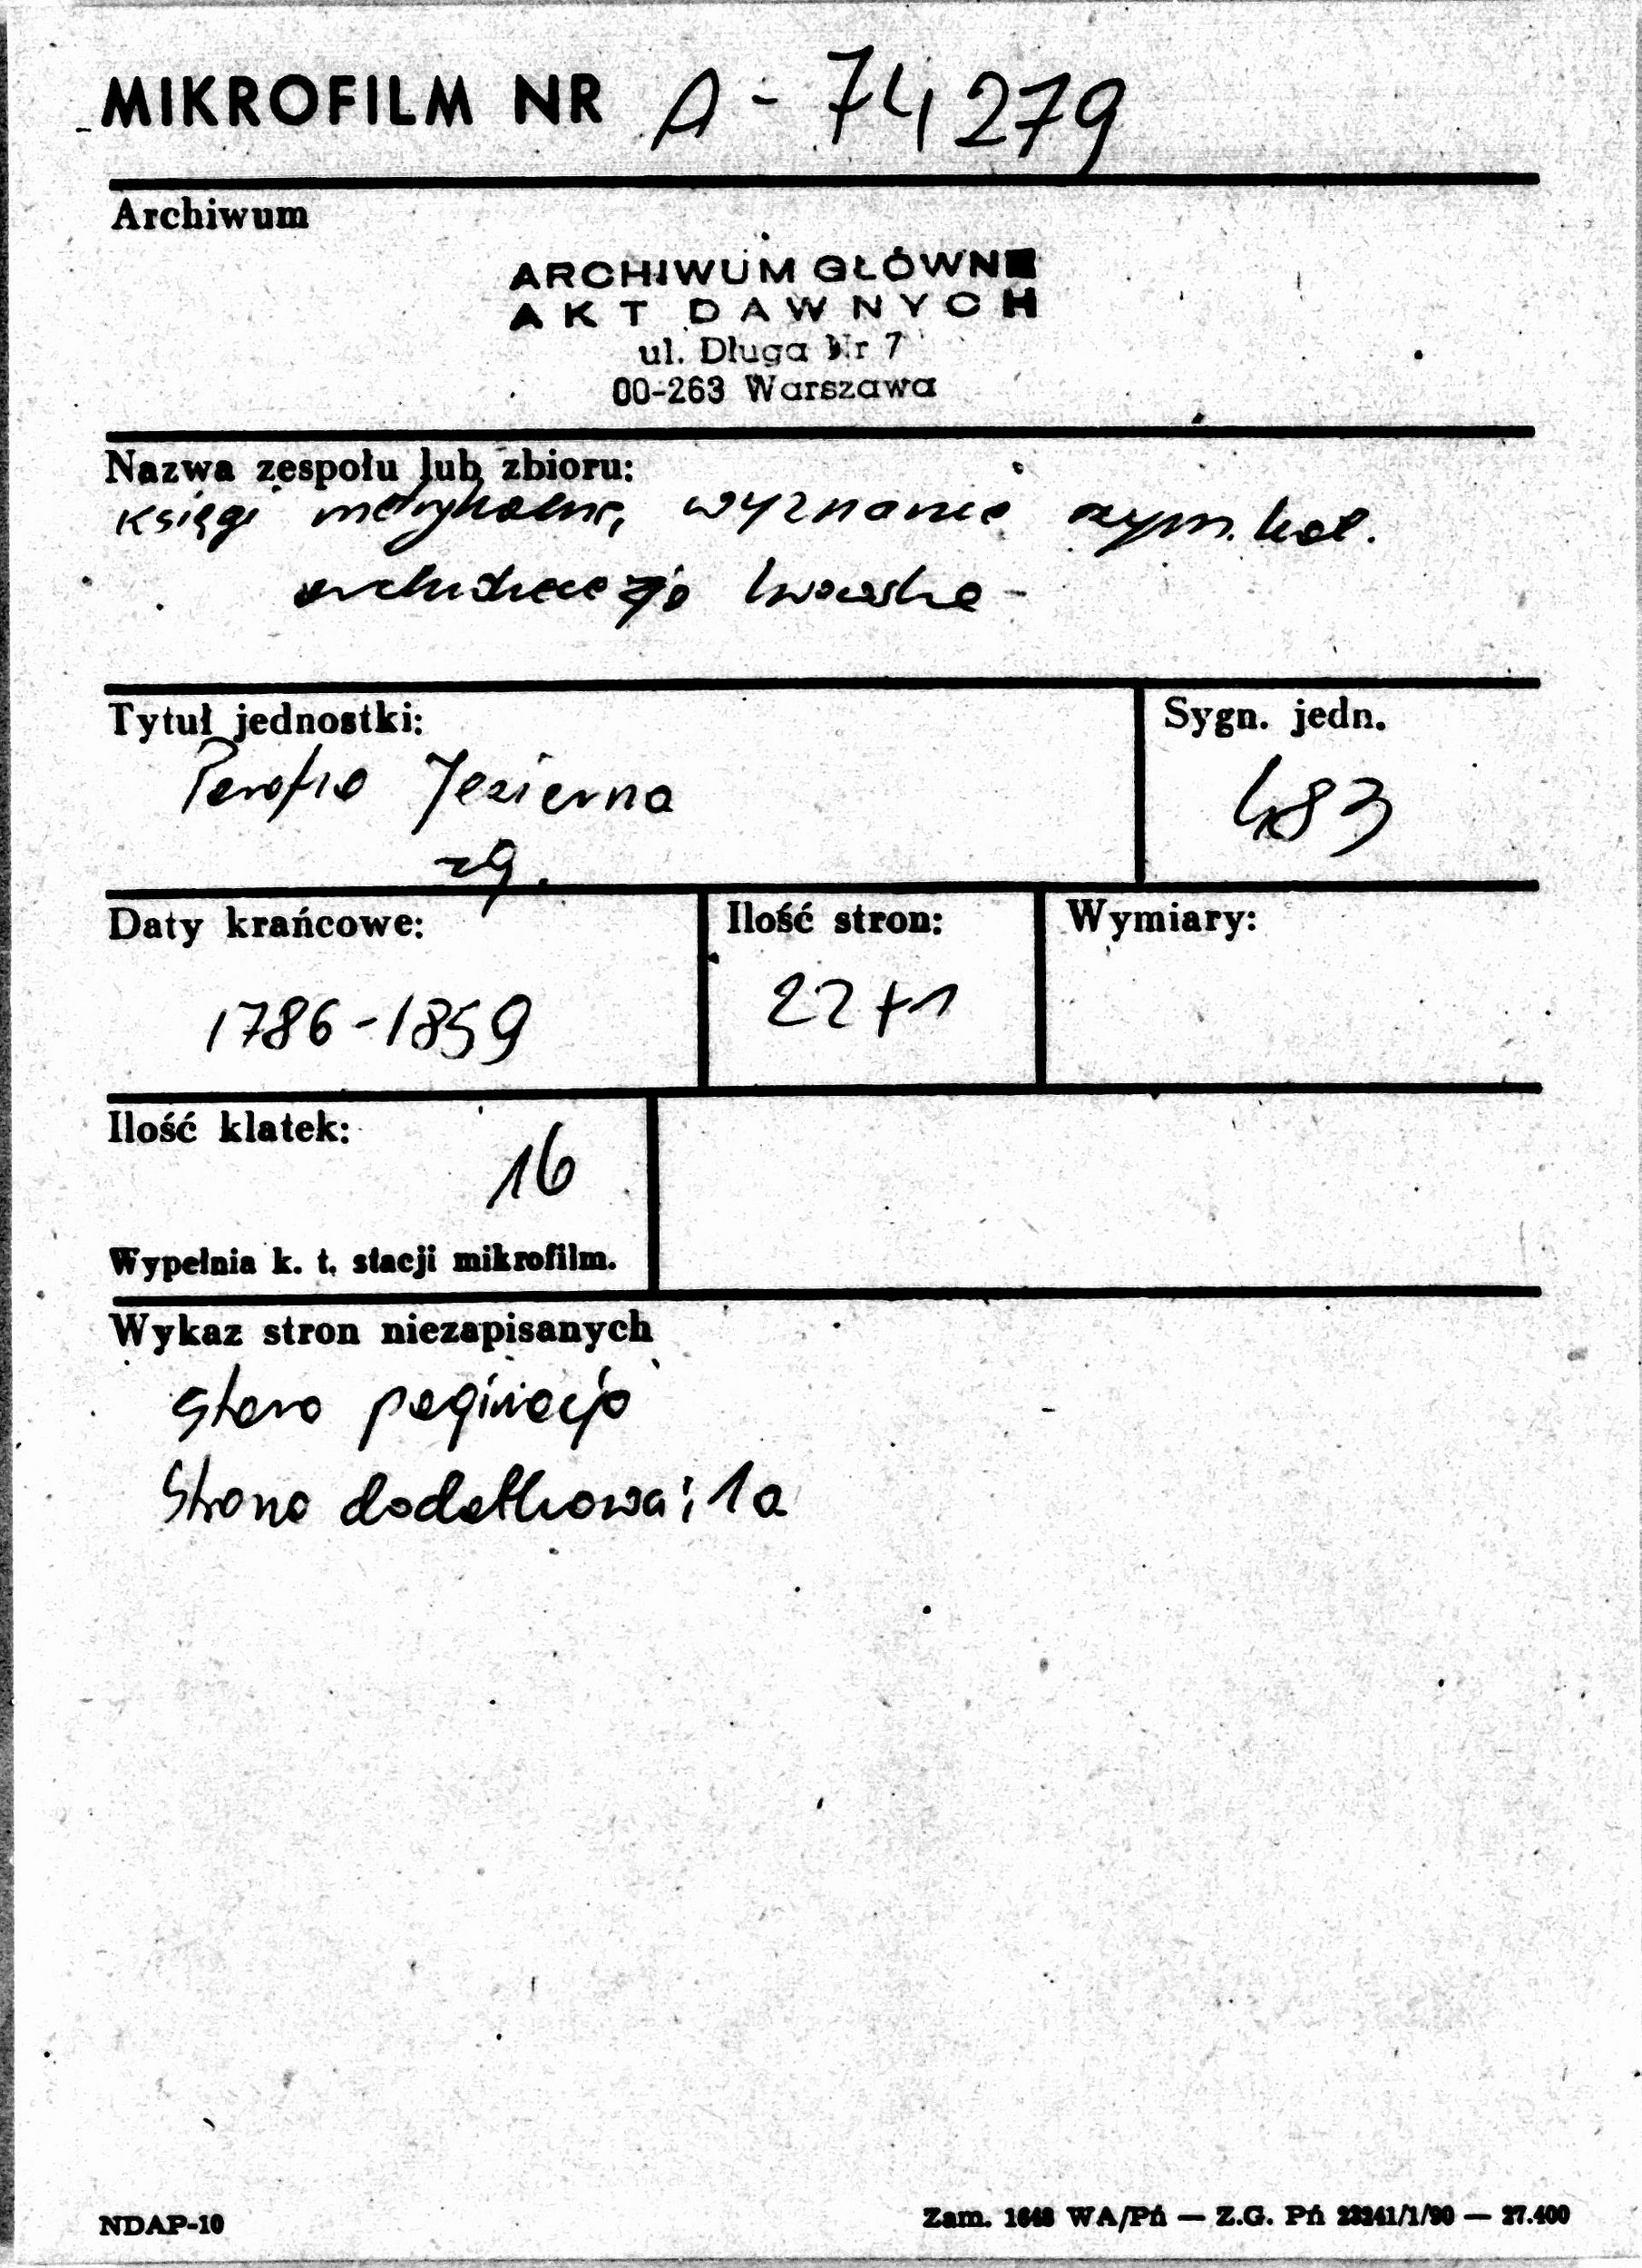 MIKROFILM NR A-74279
Archiwum
ARCHIWUM GŁÓWNE
AKT DAWNYCH
ul. Długa Nr 7
00-263 Warszawa
Nazwa zespołu lub zbioru:
Księgi metrykalne, wyznanie rzym. kat.
archidiecezja lwowska
Tytuł jednostki:
Sygn. jedn.
Parafia Jezierna
483
zg.
Daty krańcowe:
Ilość stron:
Wymiary:
1786-1859
22+1
Ilość klatek:
16
Wypełnia k. t. stacji mikrofilm.
Wykaz stron niezapisanych
Stara paginacja
Strona dodatkowa: 1a
NDAP-10
Zam. 1648 WA/Pń — Z.G. Pń 23241/1/90 — 27.400